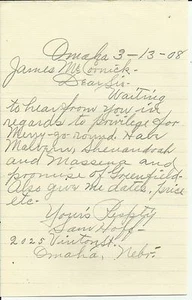 Omaha 3-13-08
James McCormick.
Dear Sir-
Waiting
to hear from you in
regards to privilege for
Merry-go-round. Have
Malvern, Shenandoah
and Massena and
promise of Greenfield.
Also give me dates, price
etc-
Your's Respty
Sam
2025 Vinton St.
Omaha, Nebr-